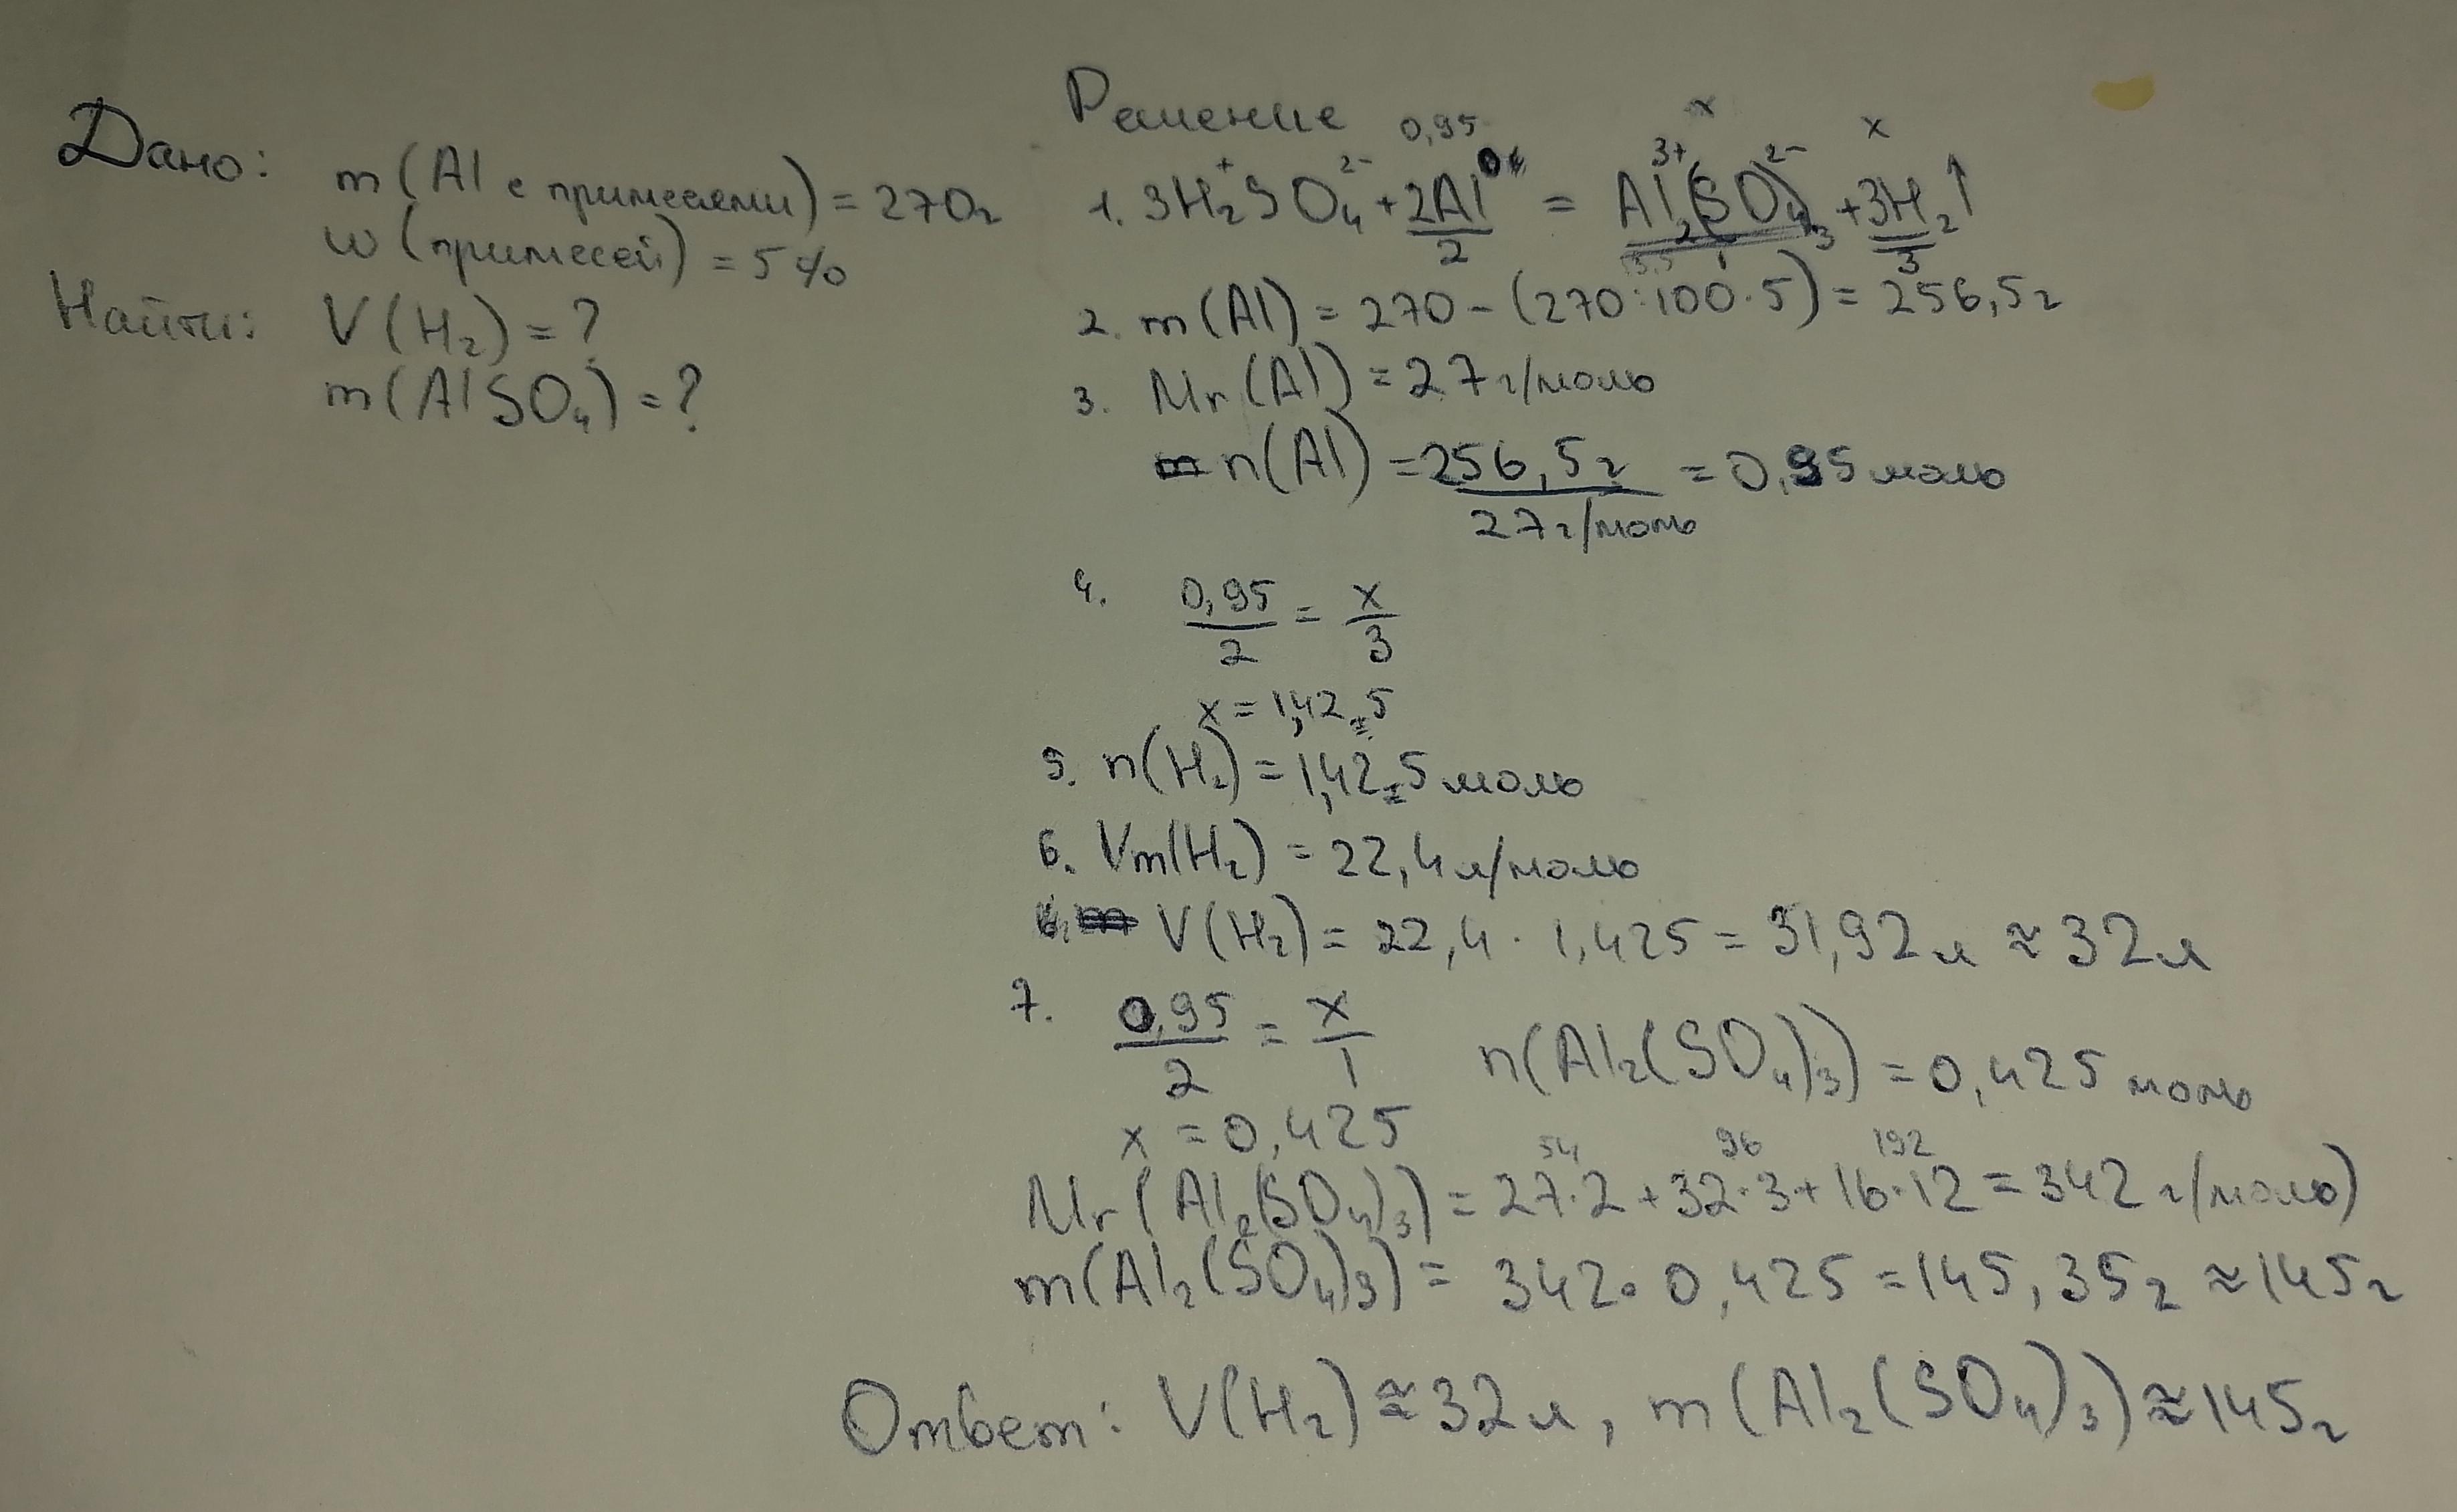 Дано:
m(Al с примесями) = 270г
w(примесей) = 5%
Найти: V(H₂) = ?
m(AlSO₄) = ?
Решение
0,95 x x
+ 2- 0 3+ 2-
1. 3H₂SO₄ + 2Al = Al₂(SO₄)₃ + 3H₂↑
2 1 3
13,5
2. m(Al) = 270 - (270:100·5) = 256,5г
3. Mr(Al) = 27 г/моль
n(Al) = 256,5г / 27г/моль = 0,95 моль
4. 0,95/2 = x/3
x = 1,425
5. n(H₂) = 1,425 моль
6. Vm(H₂) = 22,4 л/моль
V(H₂) = 22,4 · 1,425 = 31,92 л ≈ 32 л
7. 0,95/2 = x/1 n(Al₂(SO₄)₃) = 0,425 моль
x = 0,425
54 96 192
Mr(Al₂(SO₄)₃) = 27·2 + 32·3 + 16·12 = 342 г/моль)
m(Al₂(SO₄)₃) = 342 · 0,425 = 145,35г ≈ 145г
Ответ: V(H₂) ≈ 32 л, m(Al₂(SO₄)₃) ≈ 145г